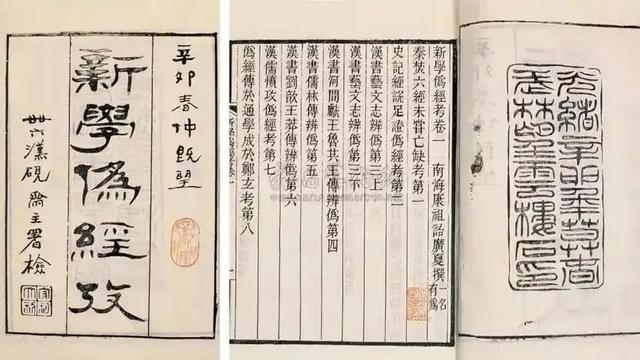 辛卯春仲既望
新學僞經攷
漢硯齋主署檢
新學僞經考卷一 南海康祖詒廣夏撰 一名有爲
秦焚六經未嘗亡缺考第一
史記經說足證僞經考第二
漢書藝文志辨僞第三上
漢書藝文志辨僞第三下
漢書河間獻王魯共王傳辨僞第四
漢書儒林傳辨僞第五
漢書劉歆王莽傳辨僞第六
漢儒憤攻僞經考第七
僞經傳於通學成於鄭玄考第八
光緒辛卯
武林望雲樓石印